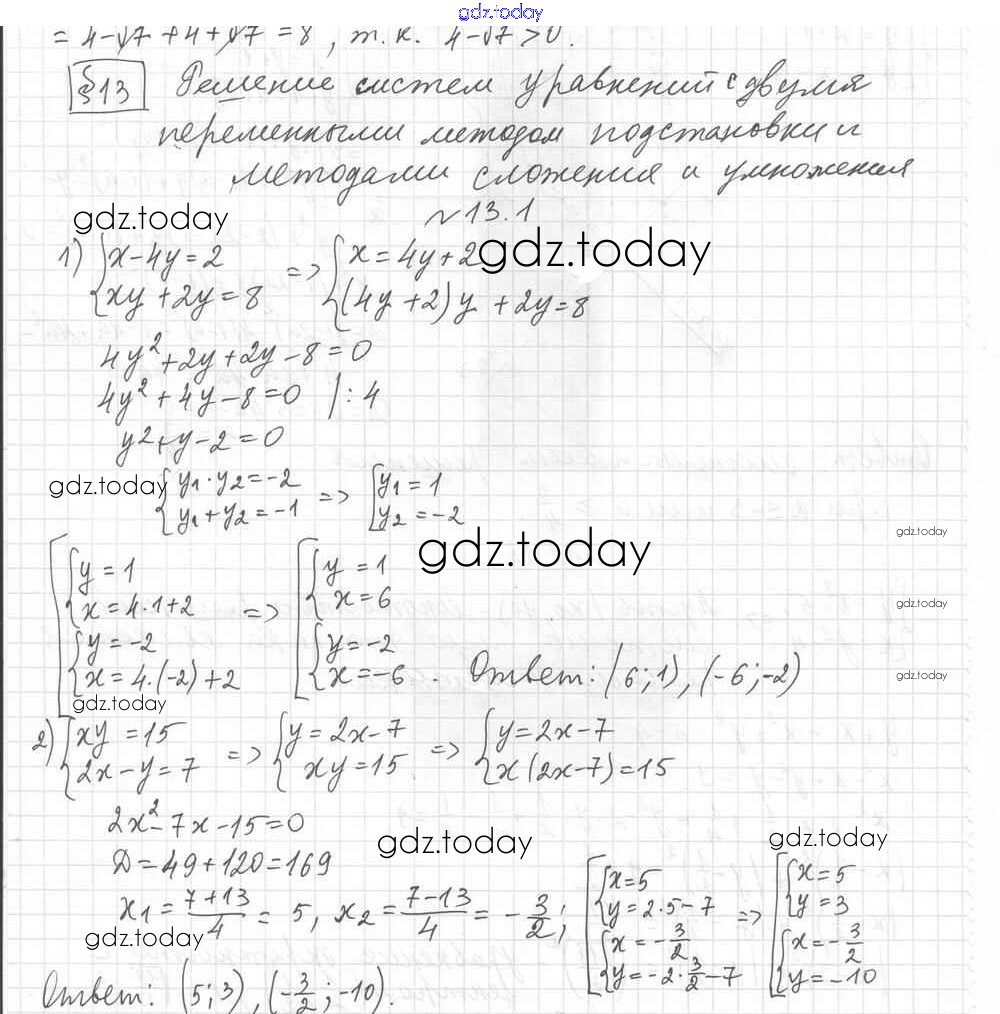 gdz.today
= 4-√7 + 4+√7 = 8, т.к. 4-√7 > 0.
§13 Решение систем уравнений с двумя
переменными методом подстановки и
методами сложения и умножения
gdz.today
№13.1
1) {x-4y=2 {xy+2y=8 => {x=4y+2 {(4y+2)y+2y=8
gdz.today
4y²+2y+2y-8=0
4y²+4y-8=0 |:4
y²+y-2=0
gdz.today
{y₁·y₂=-2 {y₁+y₂=-1 => [y₁=1 [y₂=-2
gdz.today
gdz.today
[{y=1 {x=4·1+2 {y=-2 {x=4·(-2)+2 => [{y=1 {x=6 {y=-2 {x=-6
gdz.today
Ответ: (6;1), (-6;-2)
gdz.today
gdz.today
2) {xy=15 {2x-y=7 => {y=2x-7 {xy=15 => {y=2x-7 {x(2x-7)=15
2x²-7x-15=0
gdz.today
gdz.today
D=49+120=169
x₁=(7+13)/4=5, x₂=(7-13)/4=-3/2; [{x=5 {y=2·5-7 {x=-3/2 {y=-2·3/2-7 => [{x=5 {y=3 {x=-3/2 {y=-10
gdz.today
Ответ: (5;3), (-3/2;-10).